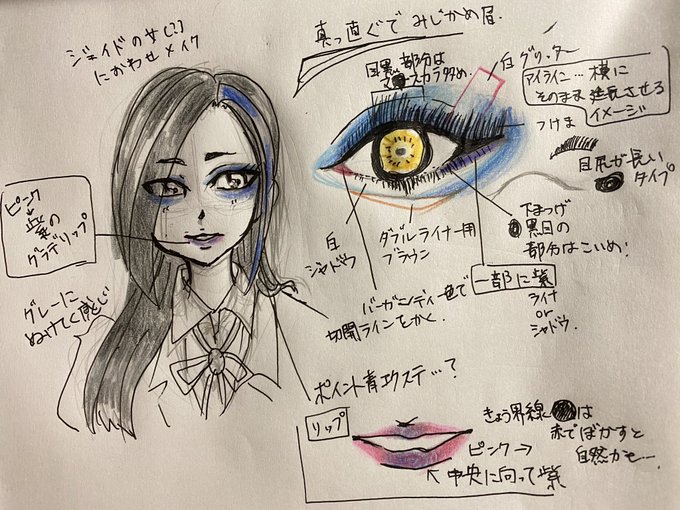 ジェイドの女(?)
におわせメイク
真っ直ぐで みじかめ眉
黒目部分は
マスカラ多め。
白グリッター
アイライン…横に
そのまま延長させる
イメージ
つけま
目尻が長い
タイプ
ピンク
紫の
グラデリップ
グレーに
ぬけてく感じ
白
シャドウ
ダブルライナー用
ブラウン
下まつげ
黒目の
部分はこいめ!
バーガンディー色で
切開ラインをかく。
一部に紫
ライナ
or
シャドウ.
ポイント青エクステ…?
リップ
きょう界線は
赤でぼかすと
自然かも…
ピンク→
↖中央に向って紫